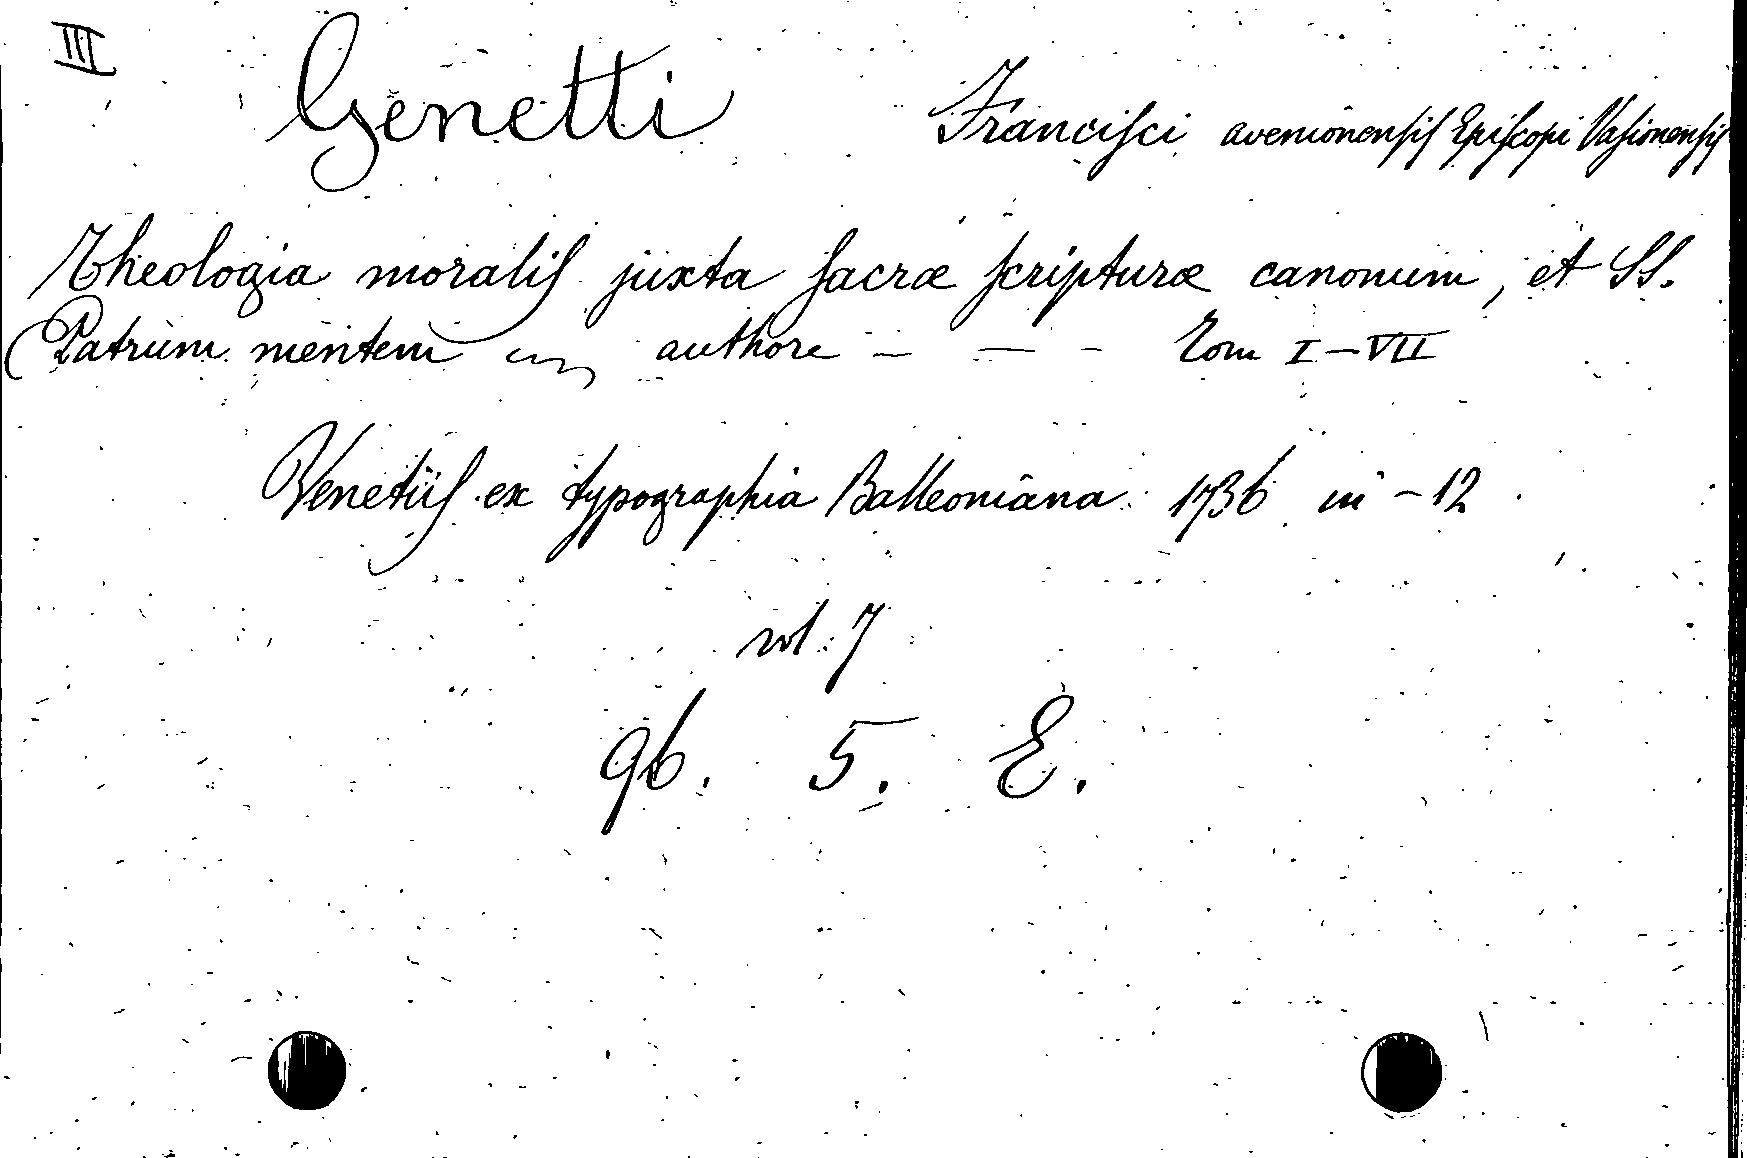 III
Genetti Francisci avenionensis Episcopi Vasionensis
Theologia moralis juxta sacræ scripturæ canonum, et SS.
Patrum mentem authore — — — Tom I-VII
Venetiis ex typographia Balleoniana 1736 in -12
vol: 7
96. 5. E.